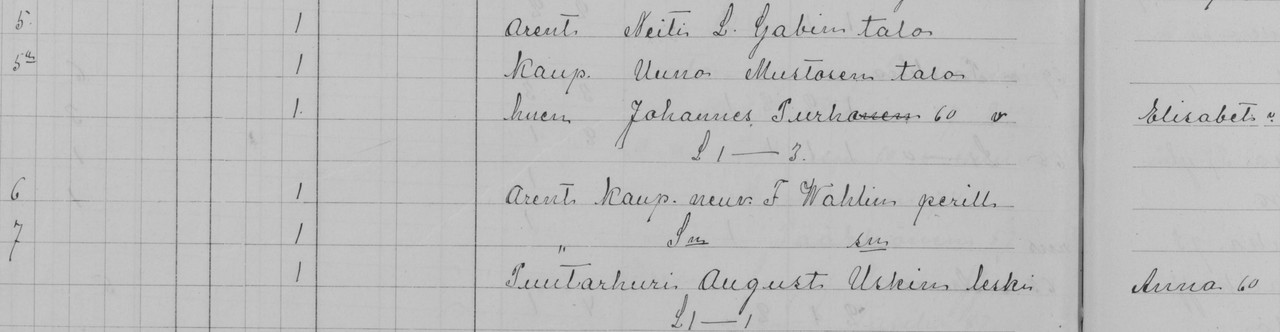 5 1 arent Neiti L. Gabin talo
5a 1 kaup. Uuno Mustosen talo
1 huen Johannes Purhonen 60 v Elisabet
L 1 — 3.
6 1 arent kaup. neuv. F Wahlin perill
7 1 " Sm sm
1 Puutarhuri August Uskin leski Anna 60
L 1 — 1